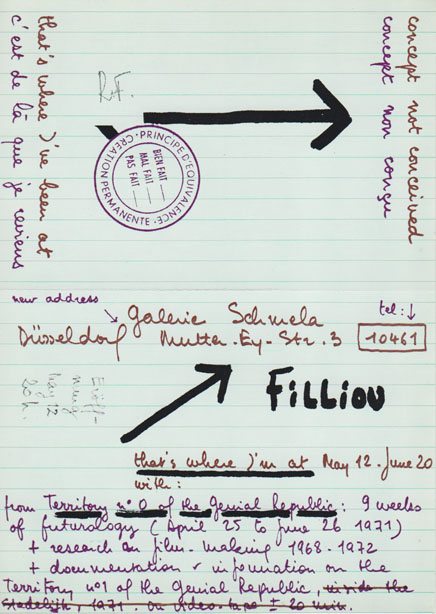 that's where I've been at
c'est de là que je reviens
R.F.
CREATION PERMANENTE · PRINCIPE D'EQUIVALENCE ·
BIEN FAIT
MAL FAIT
PAS FAIT
concept not conceived
concept non conçu
new address
Galerie Schmela
Düsseldorf Mutter-Ey-Str. 3
tel:
10461
Eröff-
nung
May 12
20h
Filliou
that's where I'm at May 12-June 20
with:
from Territory nº 0 of the Genial Republic: 9 weeks
of futurology (April 25 to June 26 1971)
+ research on film-making 1968-1972
+ documentation & information on the
Territory nº1 of the Genial Republic, inside the
Stedelijk, 1971. on video-tape ± 20 min.